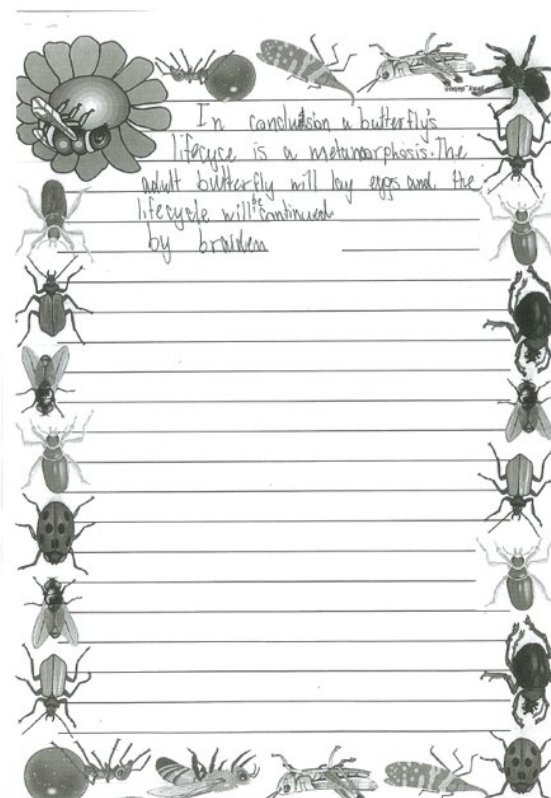 In conclusion a butterfly's
lifecyce is a metamorphosis. The
adult butterfly will lay eggs and the
lifecycle will be continued
by braiden